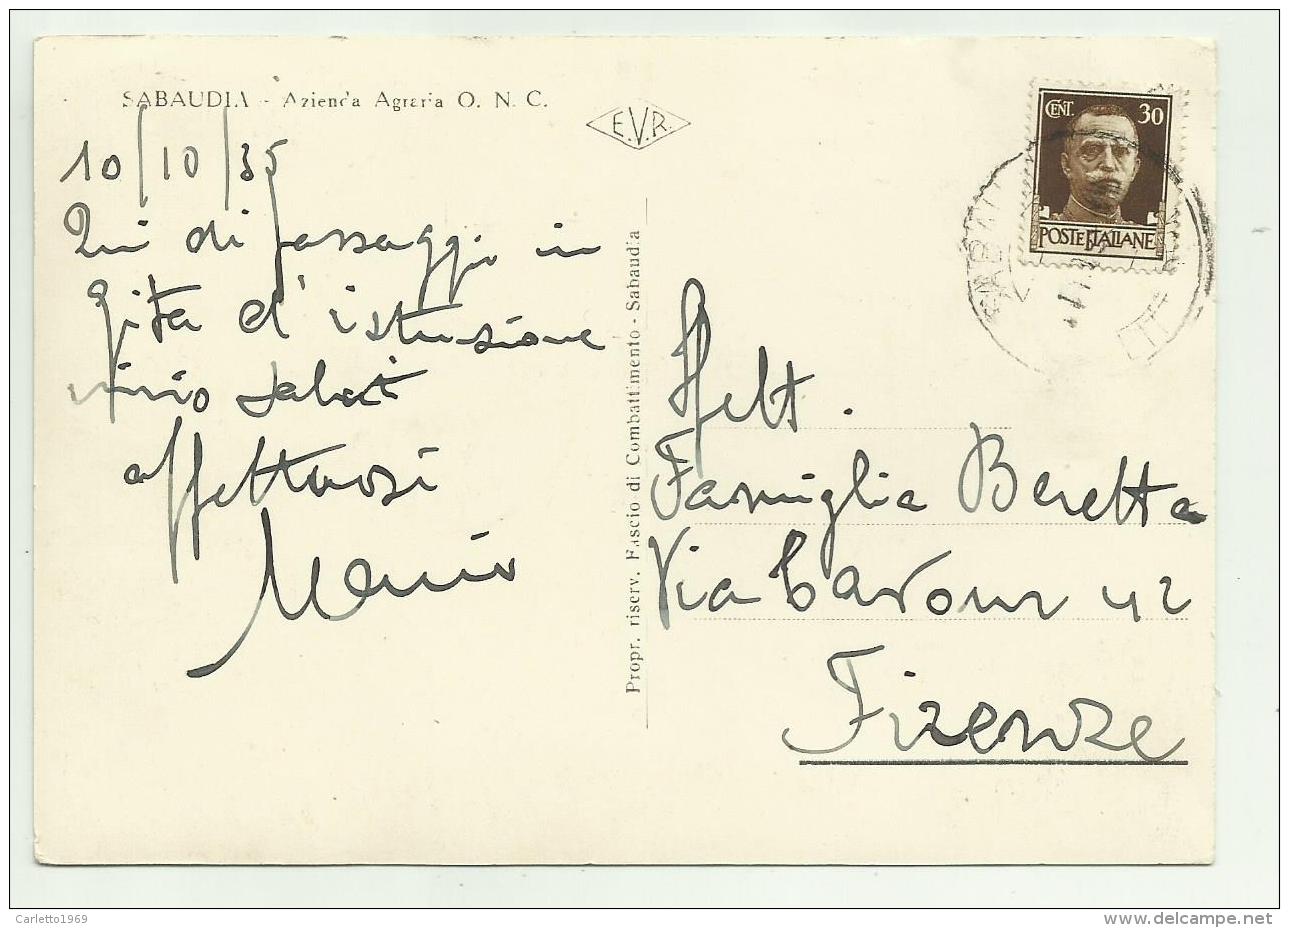 SABAUDIA - Azienda Agraria O. N. C.
E.V.R.
10/10/35
Qui di passaggio in
gita d'istruzione
invio saluti
affettuosi
Propr. riserv. Fascio di Combattimento - Sabaudia
CENT. 30
POSTE ITALIANE
Spett.
Famiglia Beretta
Via Cavour 42
Firenze
Carletto1969
delcampe.net